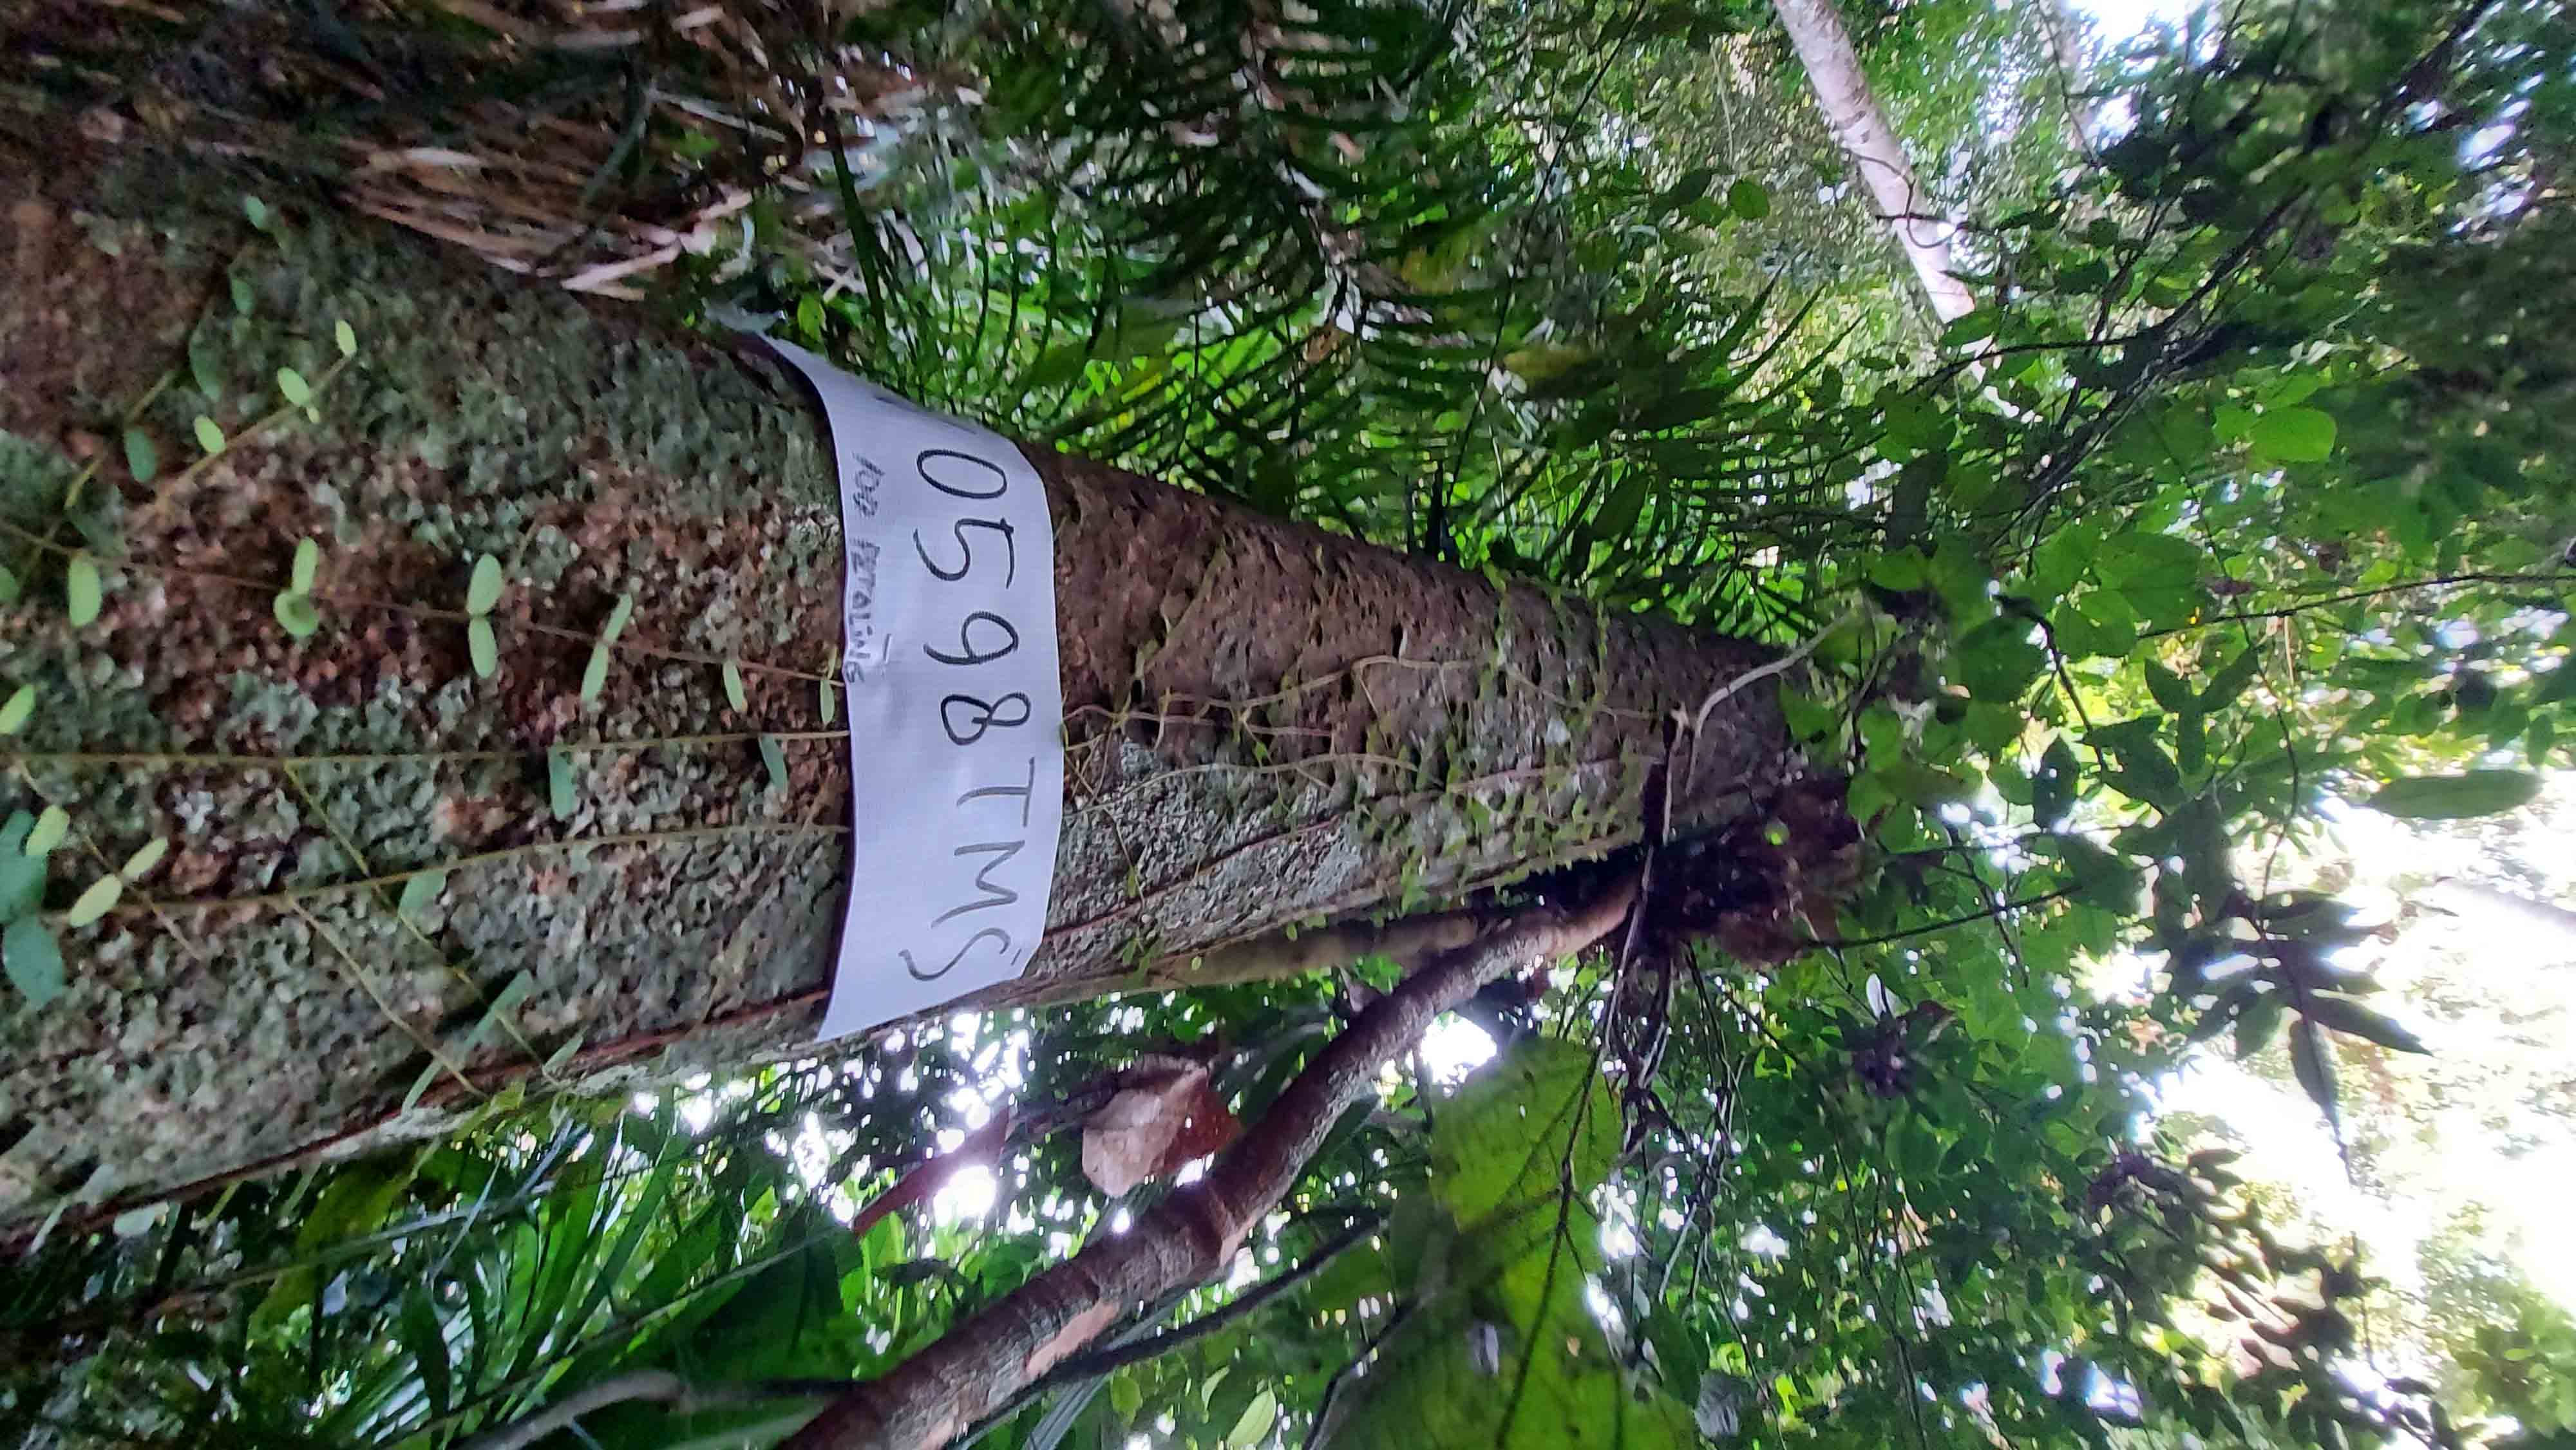 0598TMS
100 PETALING